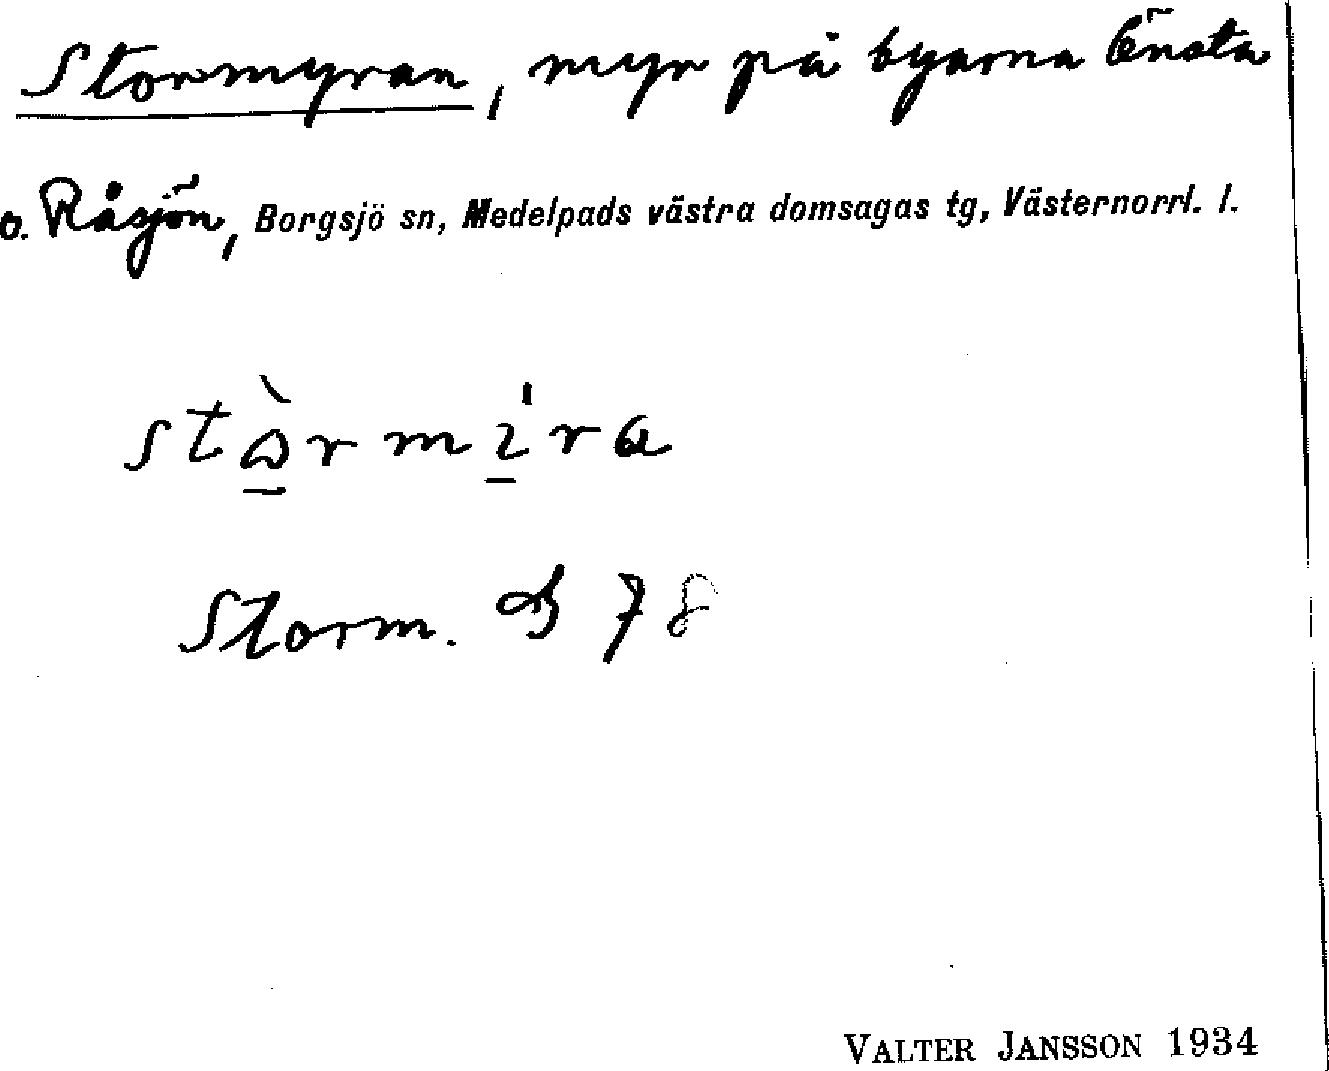 Stormyran, myr på byarna Önsta
o. Råsjön, Borgsjö sn, Medelpads västra domsagas tg, Västernorrl. l.
Storm. 78
VALTER JANSSON 1934